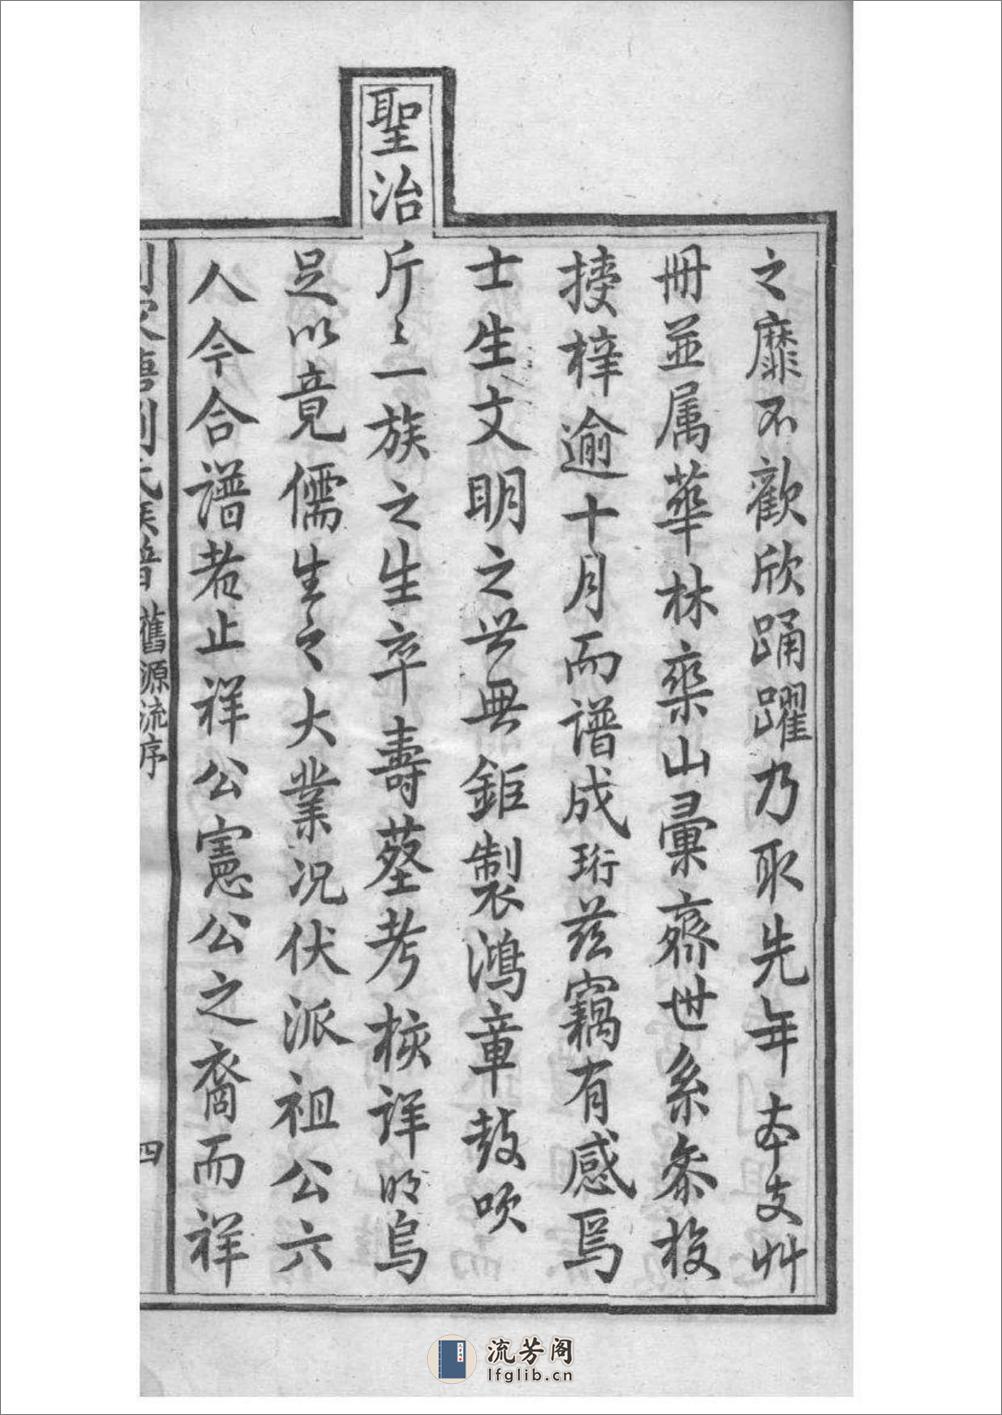 之靡不歡欣踊躍乃取先年本支艸
冊並属華林欒山彙齋世系叅校
授梓逾十月而譜成珩茲竊有感焉
士生文明之世無鉅製鴻章鼓吹
聖治
斤〻一族之生卒壽塟考核詳明烏
足以竟儒生之大業况伏派祖公六
人今合譜者止祥公憲公之裔而祥
劉氏族譜 舊源流序 四
流芳阁
lfglib.cn